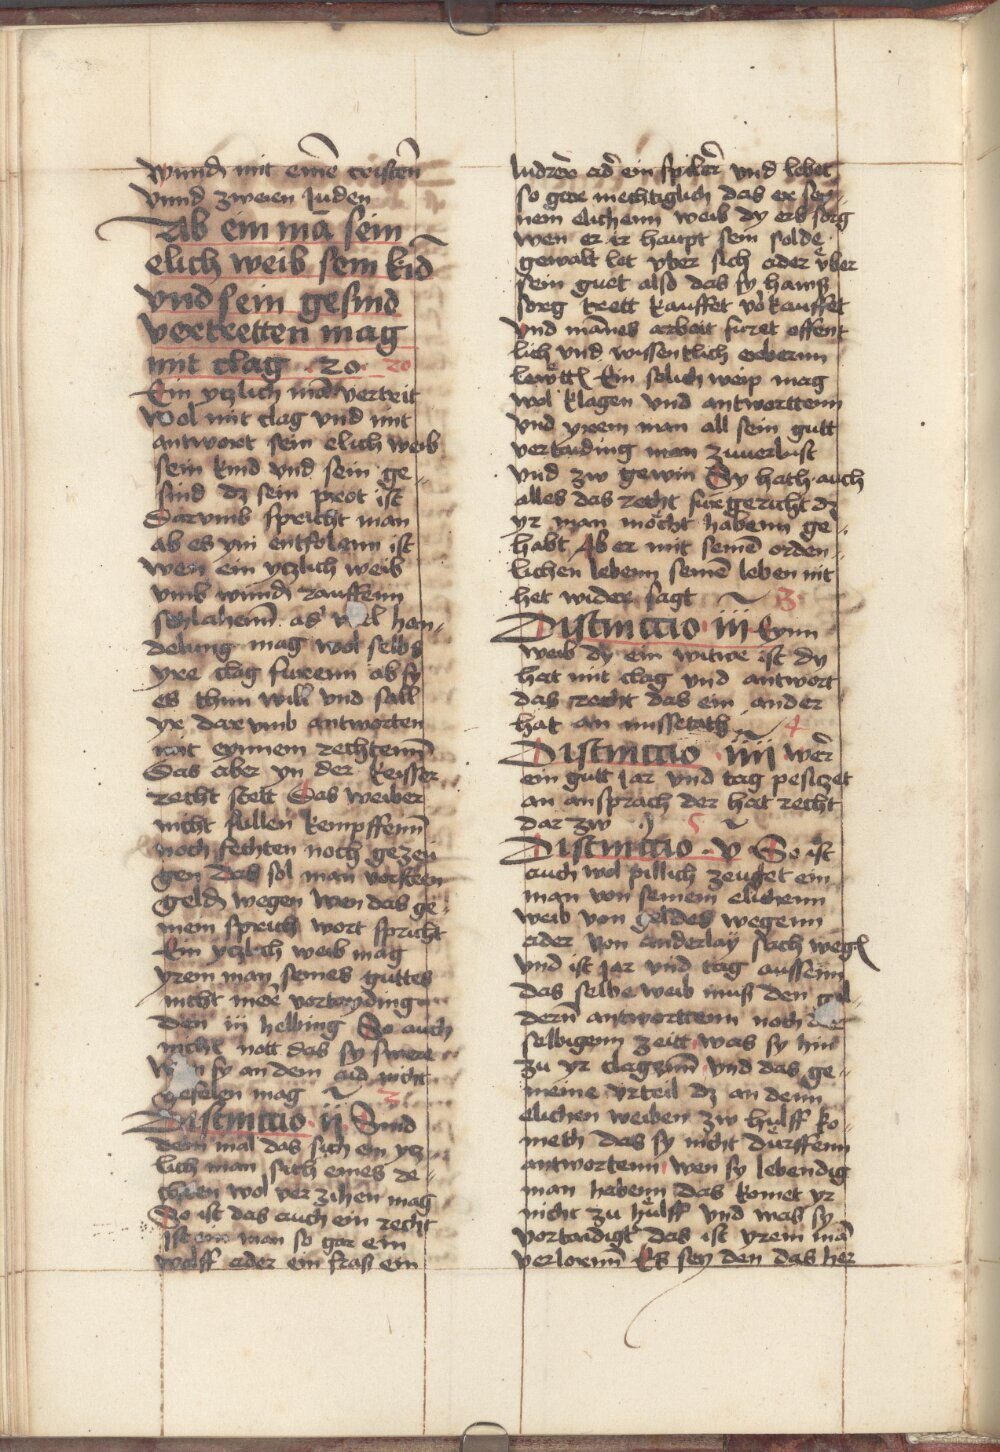 wund mit einē cristen̄
vnnd zweien Juden
Ab ein mā sein
elich weib sein kīd
vnd sein gesind
vertretten mag
mit clag .20. 20
Ein ytzlich mā vertrit
wol mit clag vnd mit
antwort sein elich weib
sein kind vnd sein ge-
sind dz sein prot ist
Darumb spricht man
ab es ym entfolenn ist
wen ein ytzlich weib
vmb wund rauffenn
schlahenn̄ ad' han-
delung mag wol selbs
yre clag furenn ab sy
es thun will vnd sall
yr dar vmb antworten
vor eynnem rechtenn̄
Das aber yn der keisser
recht stett Das weiber
nicht sullen kempffenn̄
noch fechten noch gezeu
gen Das sol man vorsteen
geld wegen wen das ge-
mein sprich wort spricht
Ein ytzlich weib mag
yrem man seines guttes
nicht mēr vorteydingn
den iii helbing So auch
nicht nott das sy swere
sy an dem aid nicht
gefelen mag 3
Distinctio ij Sind
dem mal das sich ein ytz-
lich man sich eines de-
wol verzihen mag
So ist das auch ein recht
ist ein man so gar ein
wolff ader ein fras ein
ludrer ad' ein spiler vnd lebet
so gar mechtiglich das er sey-
nem elichenn weib dy ers sorg
wen er ir haupt sein solde
gewalt let vber sich ader vber
sein guet also das sy hawß
sorg trett kauffet vōkauffet
vnd mānes arbeit furet offent
lich vnd wissentlich erbernn
lewtt Ein solich weip mag
wol klagen vnd antworttenn
vnd yrem man all sein gutt
vertaiding man zuuerlust
vnd zw gewin Sy hath auch
alles das recht fur gericht dz
yr man mocht habenn ge-
habt Ab er mit seinē orden-
lichen lebenn seinē leben nit
het wider sagt 3.
Distinctio iii Eynn
weib dy ein witwe ist dy
hat mit clag vnd antwort
das recht das ein ander
hat an missetath 4
Distinctio iiii wer
ein gutt jar vnd tag pesitzet
an ansprach der hat recht
dar zw 5
Distinctio v So ist
auch wol pillich zeuget ein
man von seinem elichenn
weib von geldes wegenn
ader von anderlay sach weg
vnd ist jar vnd tag aussenn
das selbe weib muß den
dern antworttenn noch
selbigenn zeitt was sy hin
zu yr clagenn̄ vnd das ge-
meine vrteil dz an denn
elichen weiben zw hulff ko-
meth das sy nicht durffenn
antwortenn wen sy lebendig
man habenn das komet yr
nicht zu hulff vnd was sy
vortaidigt das ist yrem mā
verlorenn̄ Es sey den das her